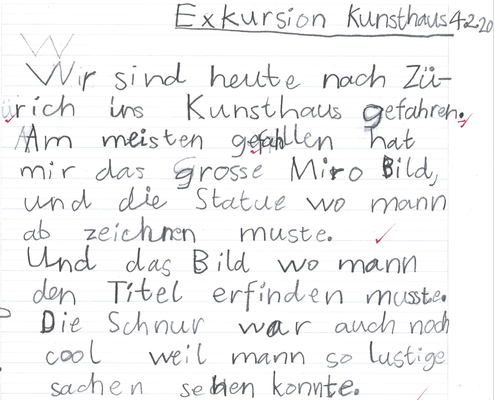 Exkursion Kunsthaus 4.2.20
Wir sind heute nach Zü-
rich ins Kunsthaus gefahren.
Am meisten gefallen hat
mir das grosse Miro Bild,
und die Statue wo mann
ab zeichnen muste.
Und das Bild wo mann
den Titel erfinden musste.
Die Schnur war auch noch
cool weil mann so lustige
sachen sehen konnte.